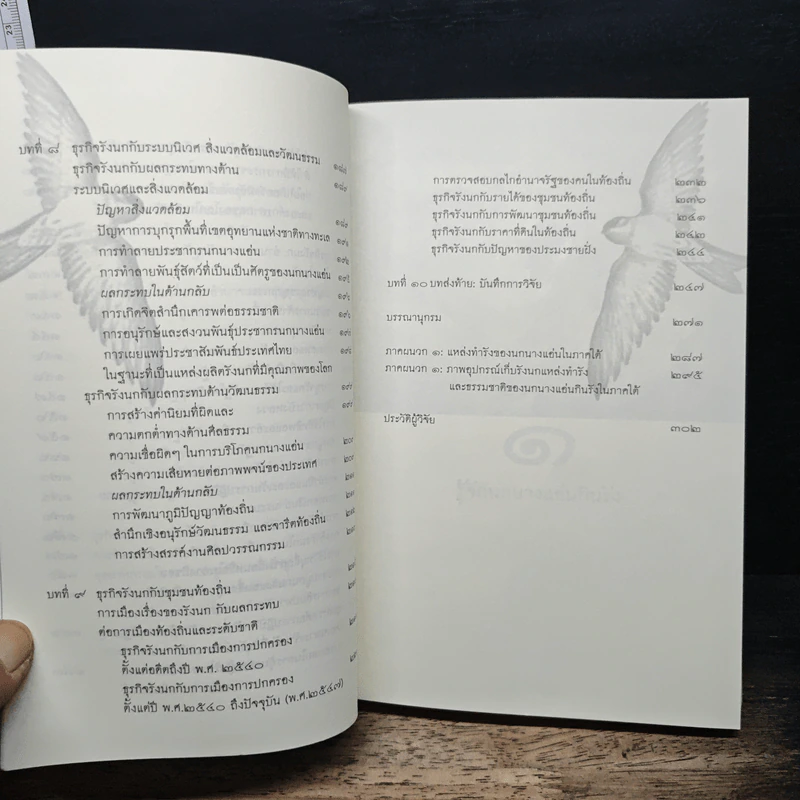 บทที่ ๘ ธุรกิจรังนกกับระบบนิเวศ สิ่งแวดล้อมและวัฒนธรรม
ธุรกิจรังนกกับผลกระทบทางด้าน
ระบบนิเวศและสิ่งแวดล้อม
ปัญหาสิ่งแวดล้อม
ปัญหาการบุกรุกพื้นที่เขตอุทยานแห่งชาติทางทะเล
การทำลายประชากรนกนางแอ่น
การทำลายพันธุ์สัตว์ที่เป็นเป็นศัตรูของนกนางแอ่น
ผลกระทบในด้านกลับ
การเกิดจิตสำนึกเคารพต่อธรรมชาติ
การอนุรักษ์และสงวนพันธุ์ประชากรนกนางแอ่น
การเผยแพร่ประชาสัมพันธ์ประเทศไทย
ในฐานะที่เป็นแหล่งผลิตรังนกที่มีคุณภาพของโลก
ธุรกิจรังนกกับผลกระทบด้านวัฒนธรรม
การสร้างค่านิยมที่ผิดและ
ความตกต่ำทางด้านศีลธรรม
ความเชื่อผิดๆ ในการบริโภคนกนางแอ่น
สร้างความเสียหายต่อภาพพจน์ของประเทศ
ผลกระทบในด้านกลับ
การพัฒนาภูมิปัญญาท้องถิ่น
สำนึกเชิงอนุรักษ์วัฒนธรรม และจารีตท้องถิ่น
การสร้างสรรค์งานศิลปวรรณกรรม
บทที่ ๙ ธุรกิจรังนกกับชุมชนท้องถิ่น
การเมืองเรื่องของรังนก กับผลกระทบ
ต่อการเมืองท้องถิ่นและระดับชาติ
ธุรกิจรังนกกับการเมืองการปกครอง
ตั้งแต่อดีตถึงปี พ.ศ. ๒๕๔๐
ธุรกิจรังนกกับการเมืองการปกครอง
ตั้งแต่ปี พ.ศ.๒๕๔๐ ถึงปัจจุบัน (พ.ศ.๒๕๔๗)
การตรวจสอบกลไกอำนาจรัฐของคนในท้องถิ่น ๒๓๒
ธุรกิจรังนกกับรายได้ของชุมชนท้องถิ่น ๒๓๖
ธุรกิจรังนกกับการพัฒนาชุมชนท้องถิ่น ๒๔๑
ธุรกิจรังนกกับราคาที่ดินในท้องถิ่น ๒๔๒
ธุรกิจรังนกกับปัญหาของประมงชายฝั่ง ๒๔๔
บทที่ ๑๐ บทส่งท้าย: บันทึกการวิจัย ๒๔๗
บรรณานุกรม ๒๗๑
ภาคผนวก ๑: แหล่งทำรังของนกนางแอ่นในภาคใต้ ๒๘๗
ภาคผนวก ๑: ภาพอุปกรณ์เก็บรังนกแหล่งทำรัง ๒๙๕
และธรรมชาติของนกนางแอ่นกินรังในภาคใต้
ประวัติผู้วิจัย ๓๐๒